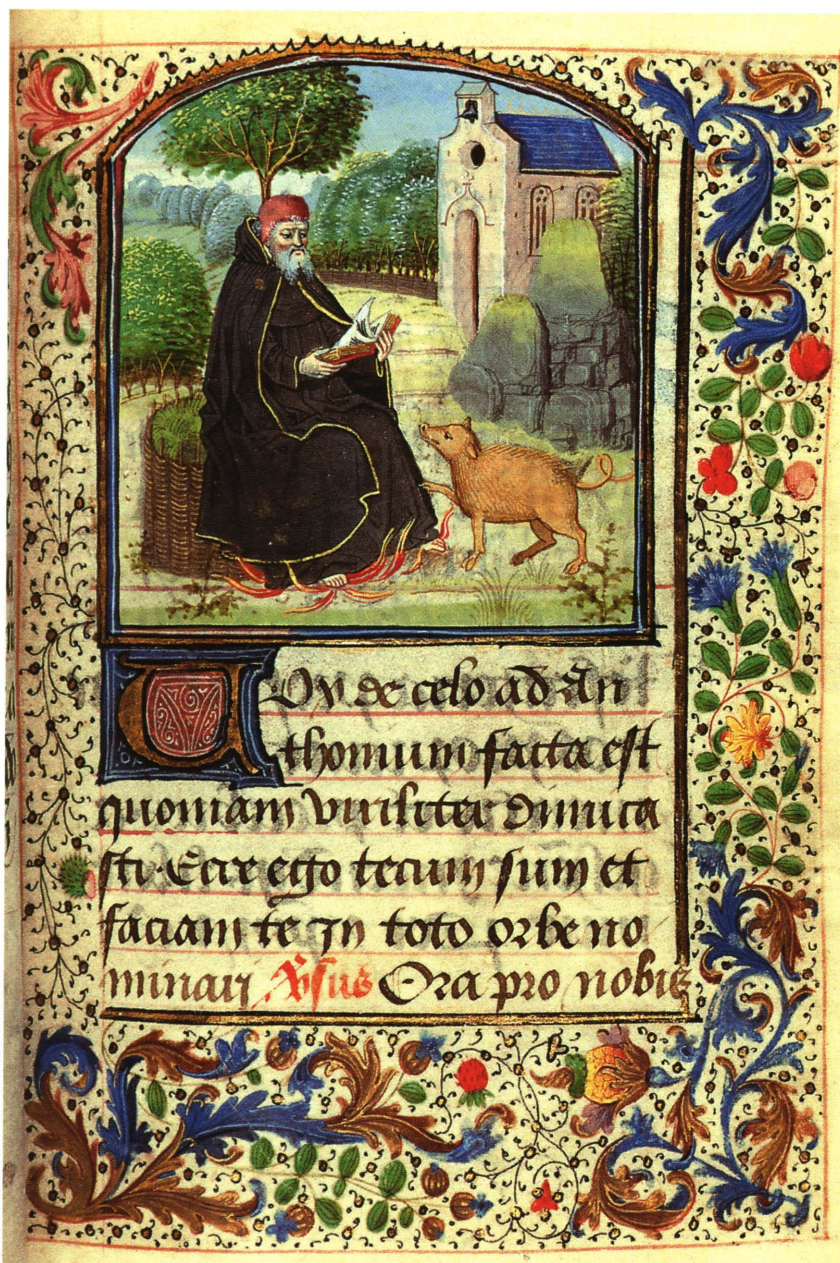 Vox de celo ad An
thonium facta est
quoniam viriliter dimica
sti. Ecce ego tecum sum et
faciam te In toto orbe no
minari Vsus Ora pro nobis